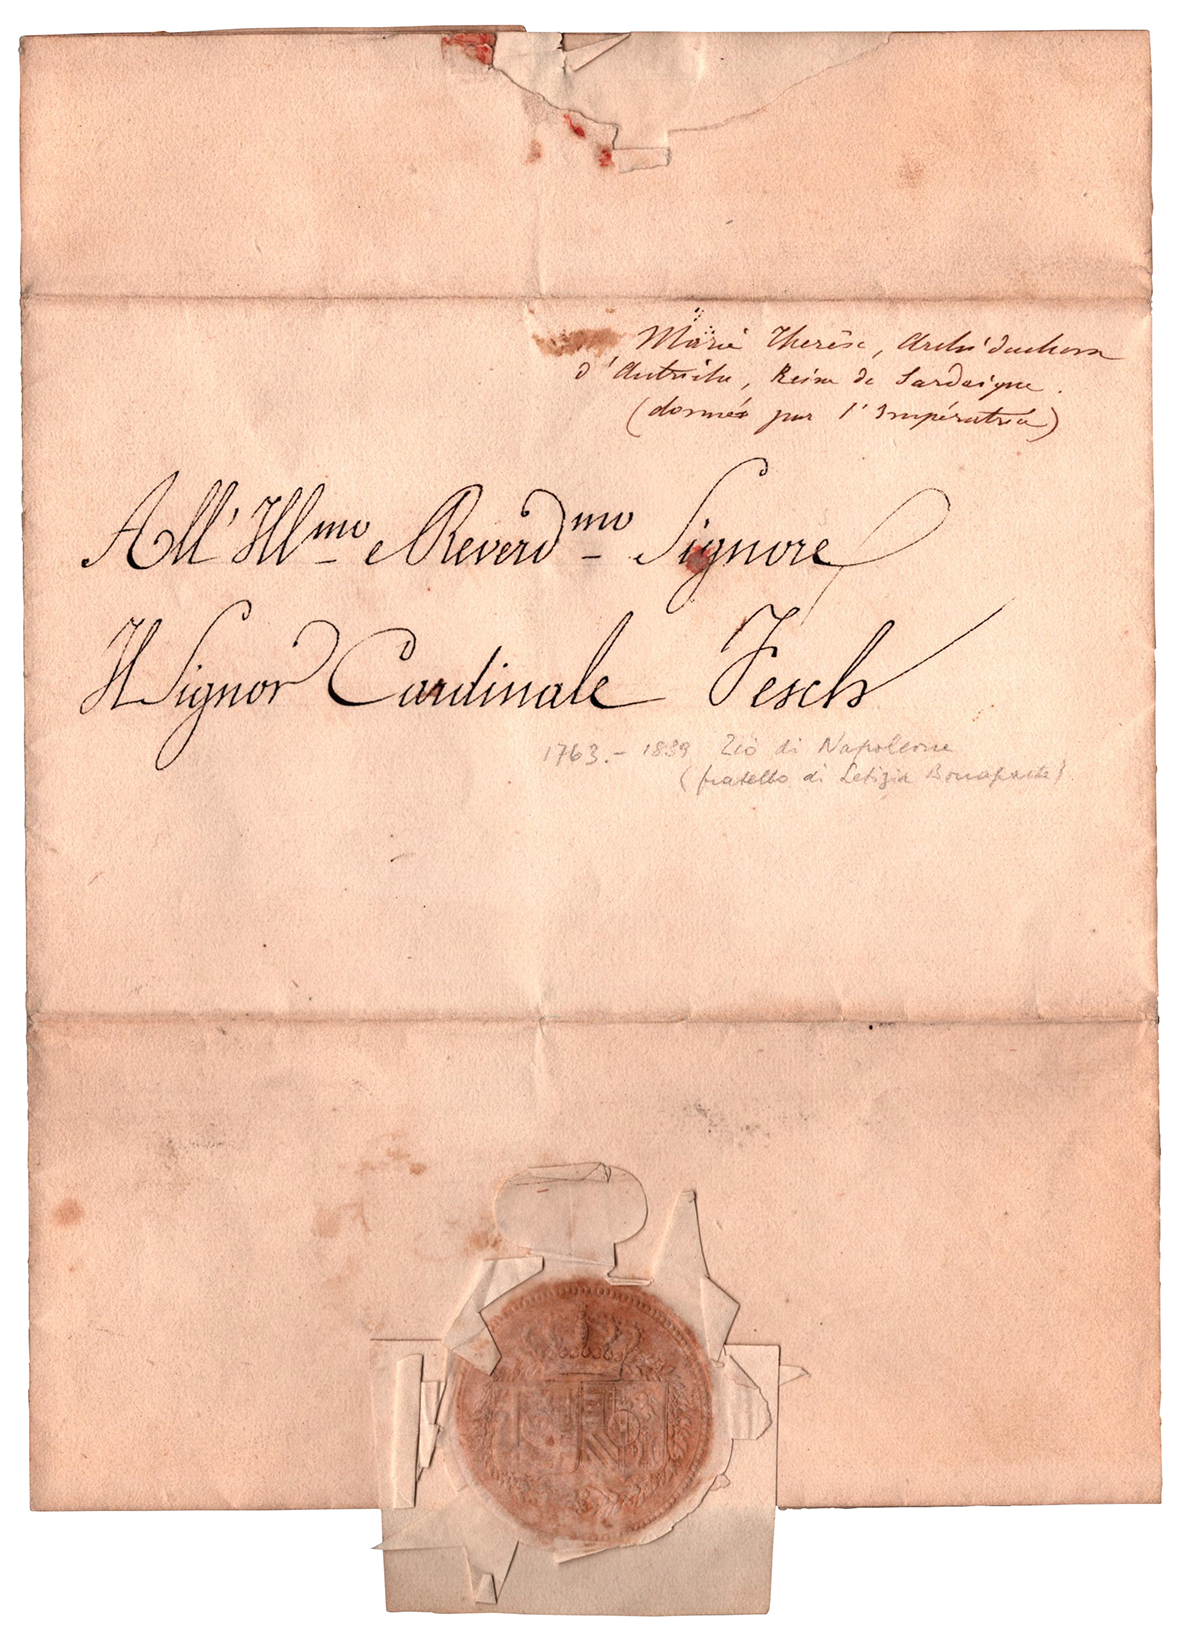 Marie Therèse, Archi'duchesse
d'Autriche, Reine de Sardaigne.
(donnée par l'Impératrice)
All' Ill.mo e Reverd.mo Signore
Il Signor Cardinale Fesch
1763.-1839 Zio di Napoleone
(fratello di Letizia Bonaparte)